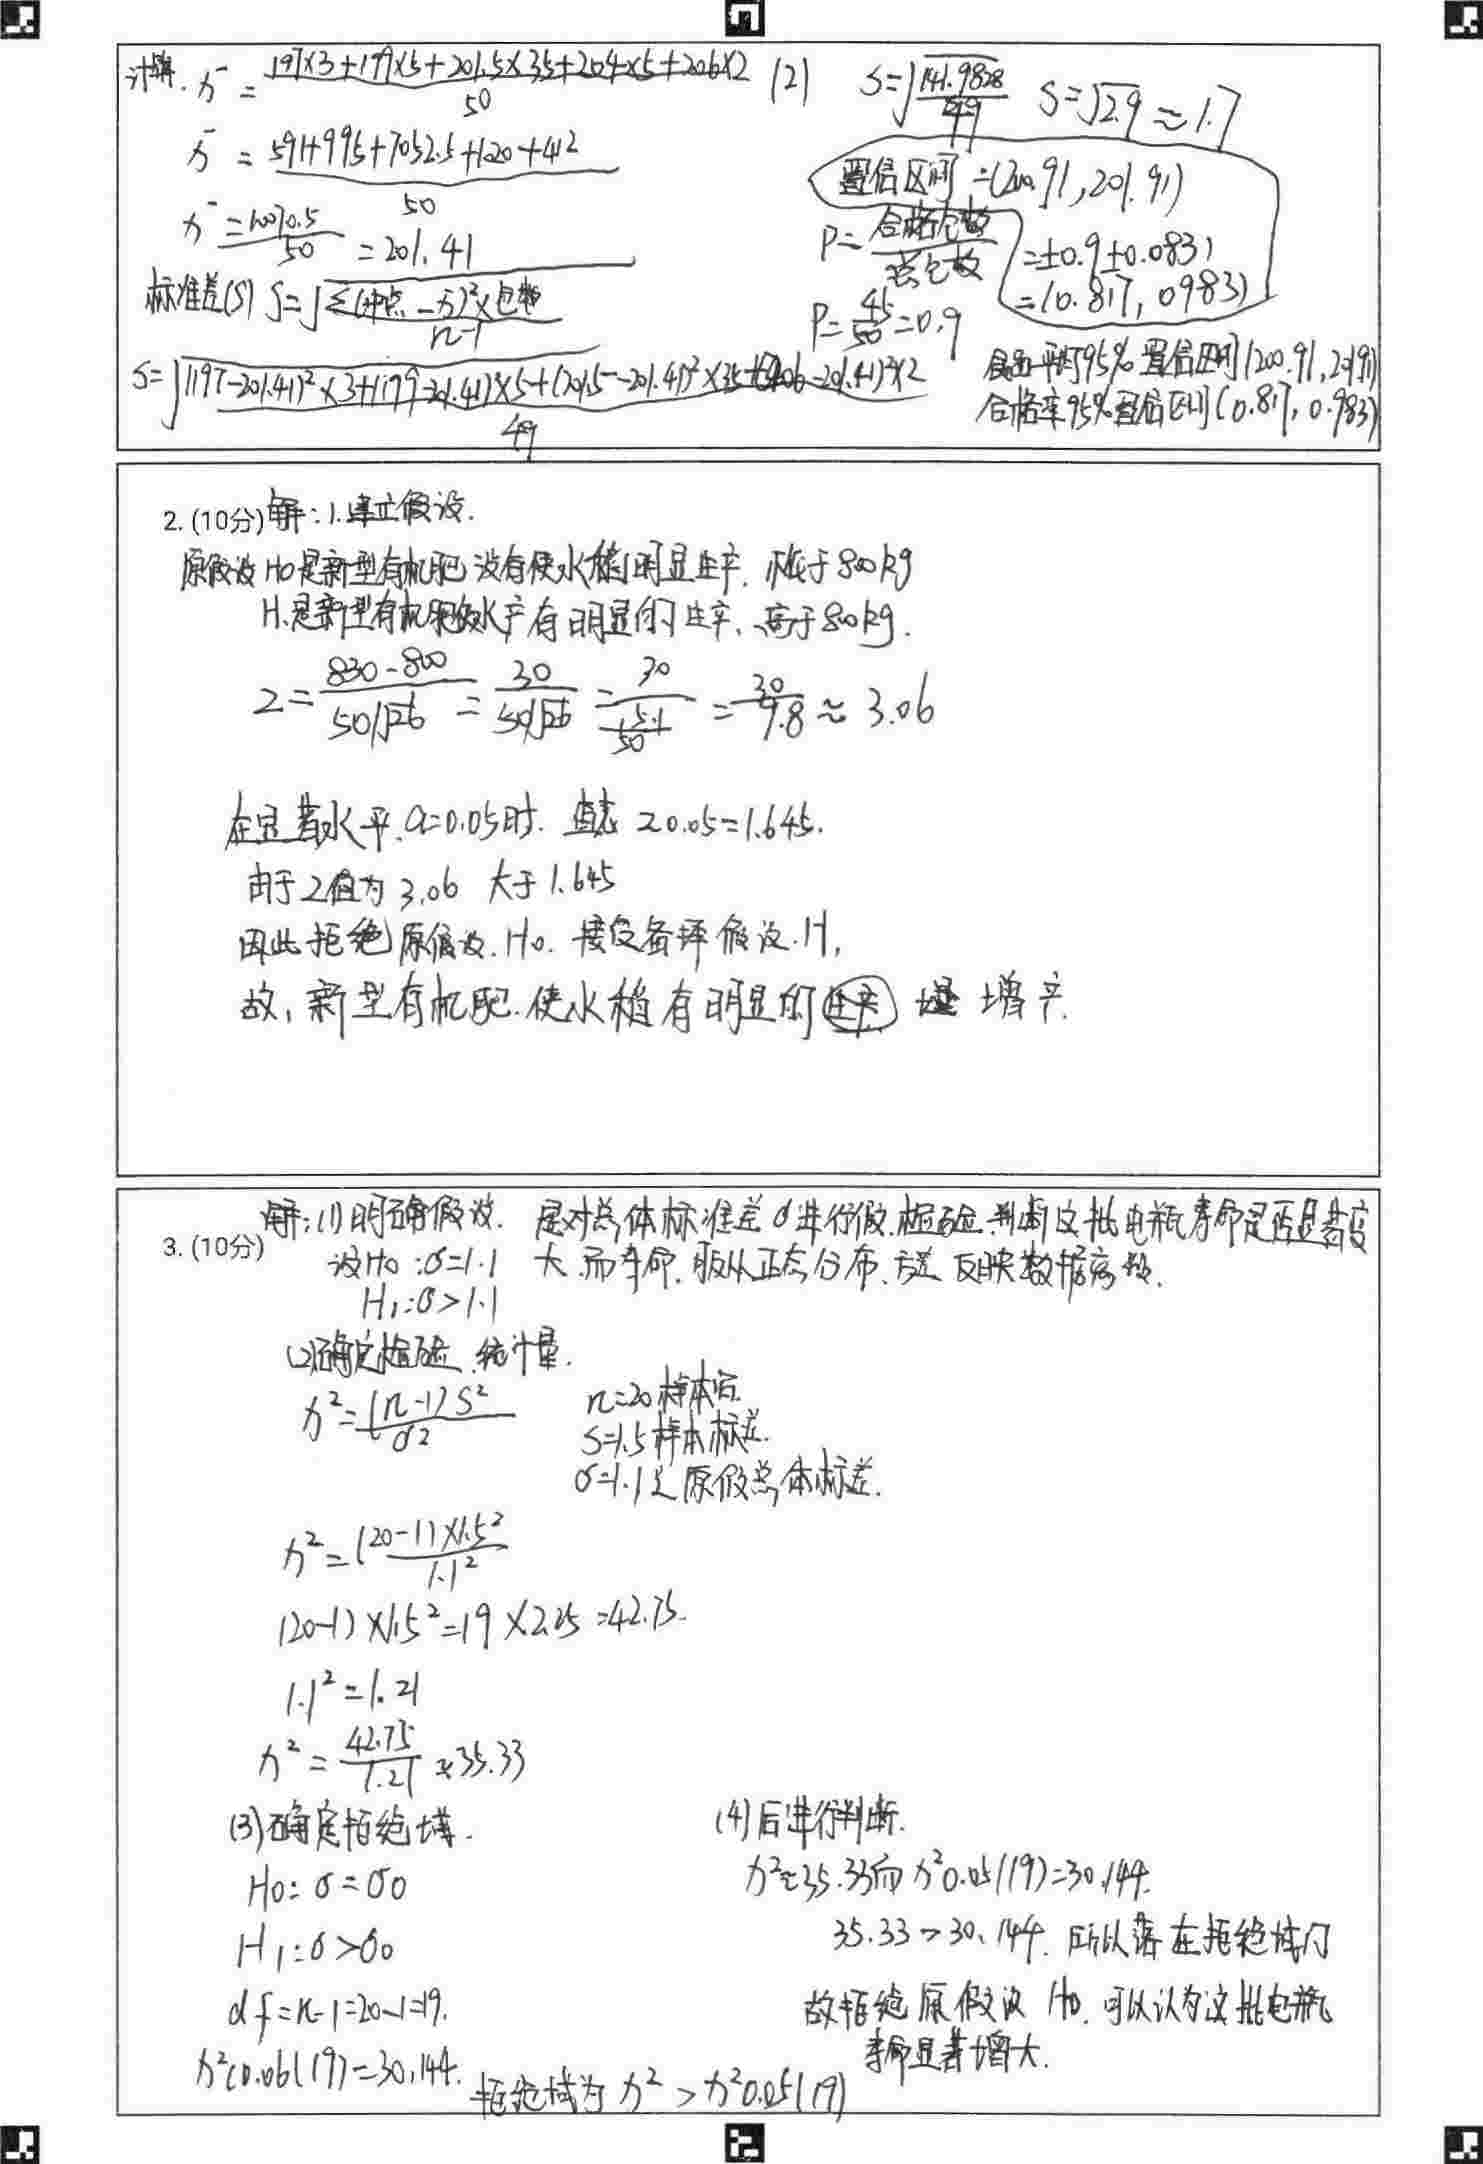 计算. x̄ = (197×3+199×5+201.5×35+204×5+206×2)/50
x̄ = (591+995+7052.5+1020+412)/50
x̄ = 10070.5/50 = 201.41
标准差(S) S=√(Σ(中点-x̄)²×包数/(n-1))
S=√(((197-201.41)²×3+(199-201.41)²×5+(201.5-201.41)²×35+(206-201.41)²×2)/49)
(2) S=√(141.9828/49) S=√2.9 ≈1.7
置信区间=(200.91,201.91)
P=合格包数/总包数
=±0.9±0.083)
=(0.817, 0983)
P=45/50=0.9
食品平均95%置信区间(200.91,201.91)
合格率95%置信区间(0.817, 0.983)
2. (10分) 解:1.建立假设.
原假设H0是新型有机肥没有使水稻明显生产. 低于800kg
H1是新型有机肥使水产有明显的生产、高于800kg.
Z=(830-800)/(50/√26)=30/(50/√26)=30/(5.1/50)=30/9.8≈3.06
在显著水平.α=0.05时. 查表 Z0.05=1.645.
由于Z值为3.06 大于1.645
因此拒绝原假设.H0. 接受备择假设.H1
故, 新型有机肥.使水稻有明显的 增产.
3. (10分) 解:(1)明确假设. 是对总体标准差σ进行假.检验.判断这批电瓶寿命是否显著变
设H0:σ=1.1 大.而寿命.服从正态分布、方差反映数据离散.
H1:σ>1.1
(2)确定检验.统计量.
x²=(n-1)S²/σ²
n=20样本容
S=1.5样本标差.
σ=1.1是原假总体标差.
x²=(20-1)×1.5²/1.1²
(20-1)×1.5²=19×2.25=42.75.
1.1²=1.21
x²=42.75/1.21≈35.33
(3)确定拒绝域.
H0: σ=σ0
H1:σ>σ0
df=n-1=20-1=19.
x²(0.06(19)=30.144.
拒绝域为 x²>x²0.05(19)
(4)后进行判断.
x²≈35.33而x²0.05(19)=30.144.
35.33>30.144. 所以落在拒绝域内
故拒绝原假设 H0. 可以认为这批电瓶
寿命显著增大.